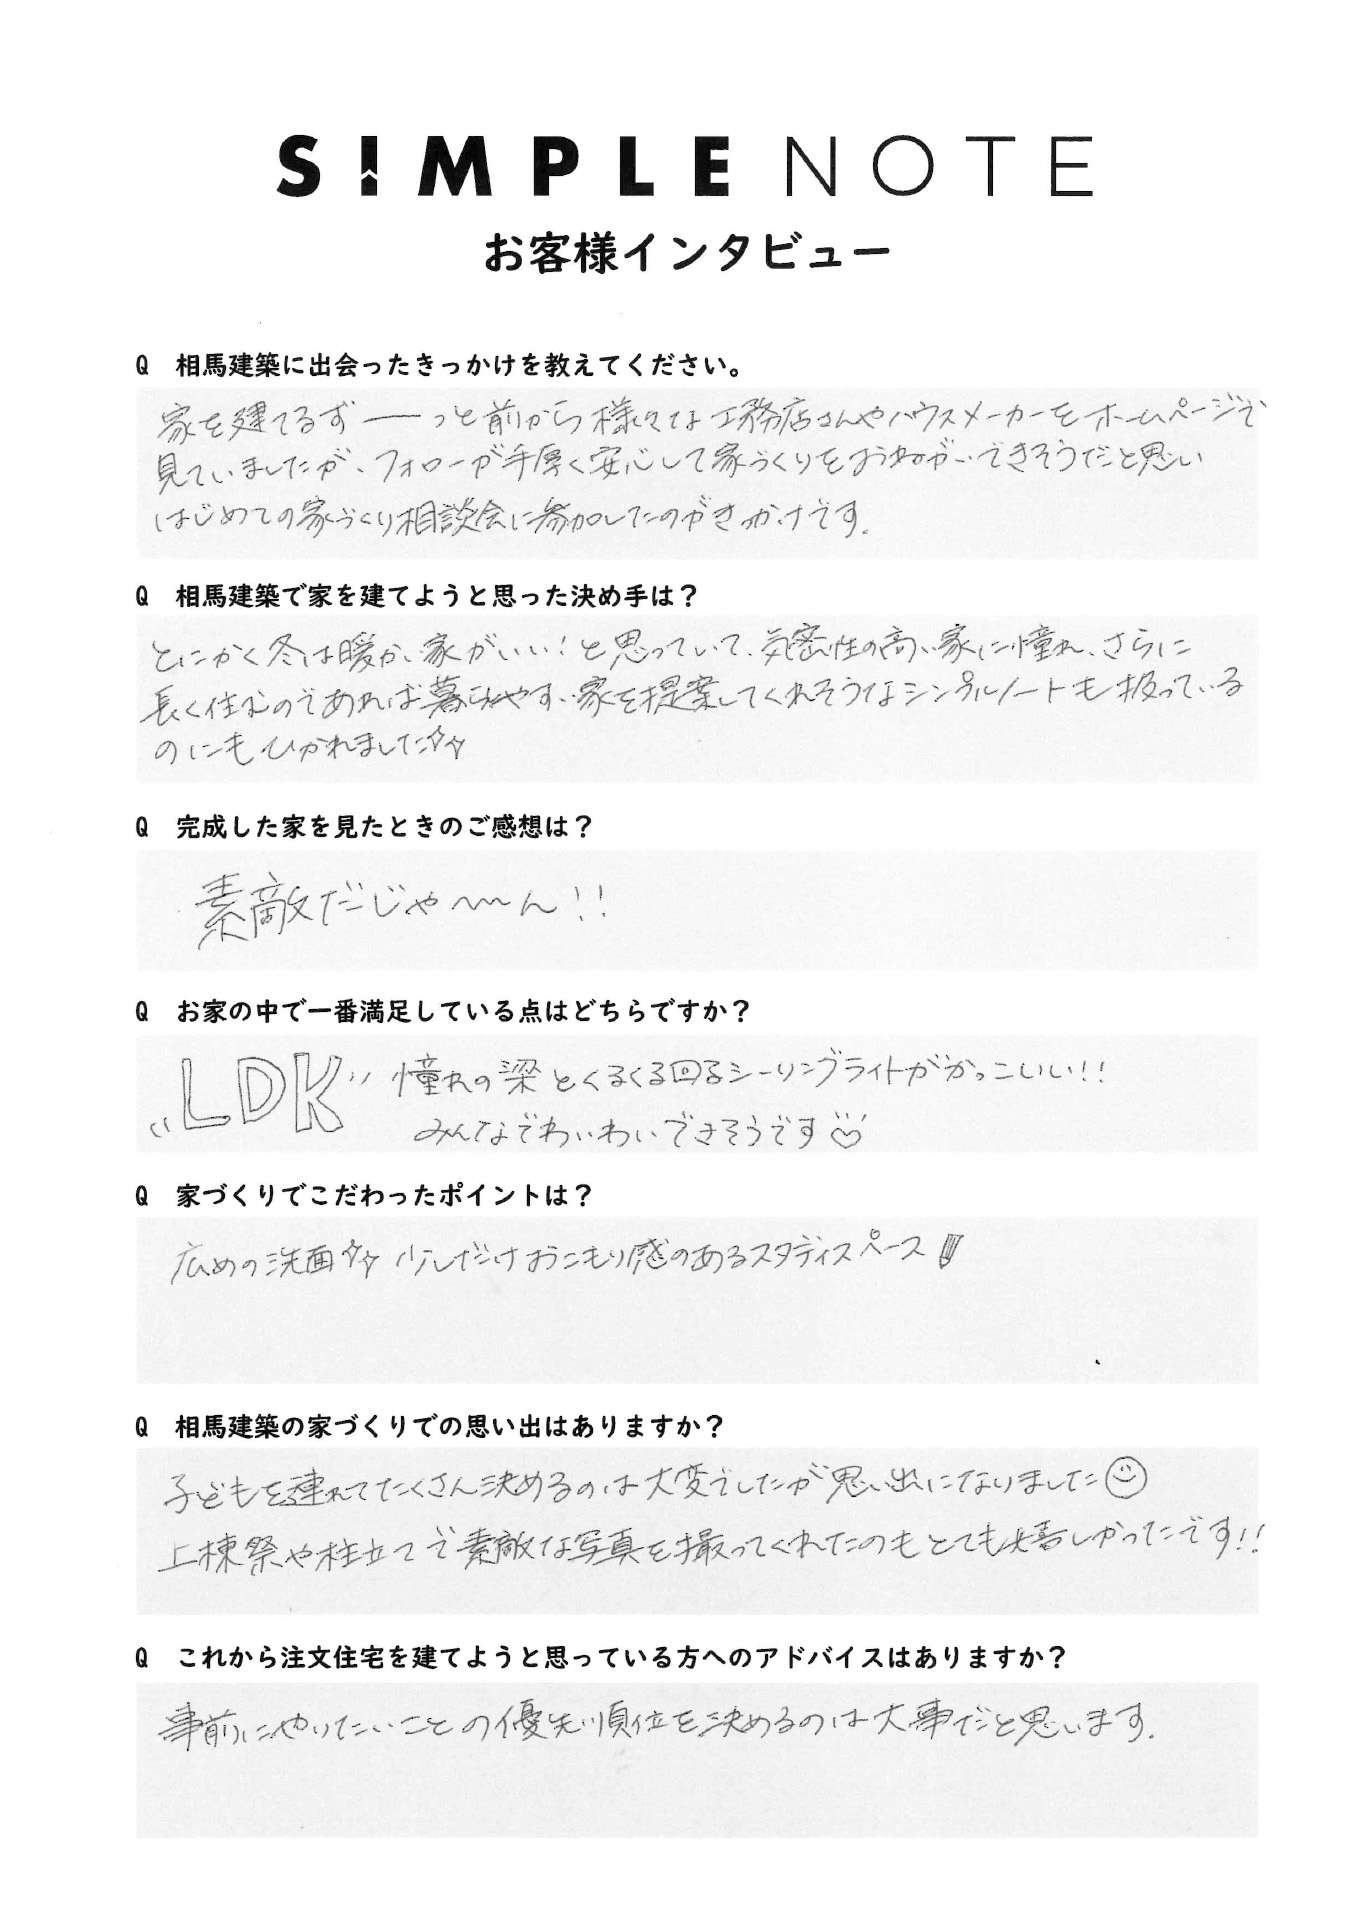 SIMPLE NOTE
お客様インタビュー
Q 相馬建築に出会ったきっかけを教えてください。
家を建てるずーーっと前から様々な工務店さんやハウスメーカーをホームページで
見ていましたが、フォローが手厚く安心して家づくりをおねがいできそうだと思い
はじめての家づくり相談会に参加したのがきっかけです.
Q 相馬建築で家を建てようと思った決め手は？
とにかく冬は暖かい家がいい！と思っていて、気密性の高い家に憧れ、さらに
長く住むのであれば暮らしやすい家を提案してくれそうなシンプルノートも扱っている
のにもひかれました☆☆
Q 完成した家を見たときのご感想は？
素敵だじゃ〜〜ん！！
Q お家の中で一番満足している点はどちらですか？
"LDK" 憧れの梁とくるくる回るシーリングライトがかっこいい！！
みんなでわいわいできそうです
Q 家づくりでこだわったポイントは？
広めの洗面☆☆ 少しだけおこもり感のあるスタディスペース
Q 相馬建築の家づくりでの思い出はありますか？
子どもを連れてたくさん決めるのは大変でしたが思い出になりました☺
上棟祭や柱立てで素敵な写真を撮ってくれたのもとても嬉しかったです！！
Q これから注文住宅を建てようと思っている方へのアドバイスはありますか？
事前にやりたいことの優先順位を決めるのは大事だと思います.